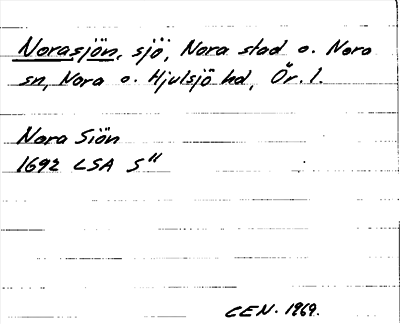 Norasjön, sjö, Nora stad o. Nora
sn, Nora o. Hjulsjö hd, Ör. l.
Nora Siön
1692 LSA S"
CEN. 1969.